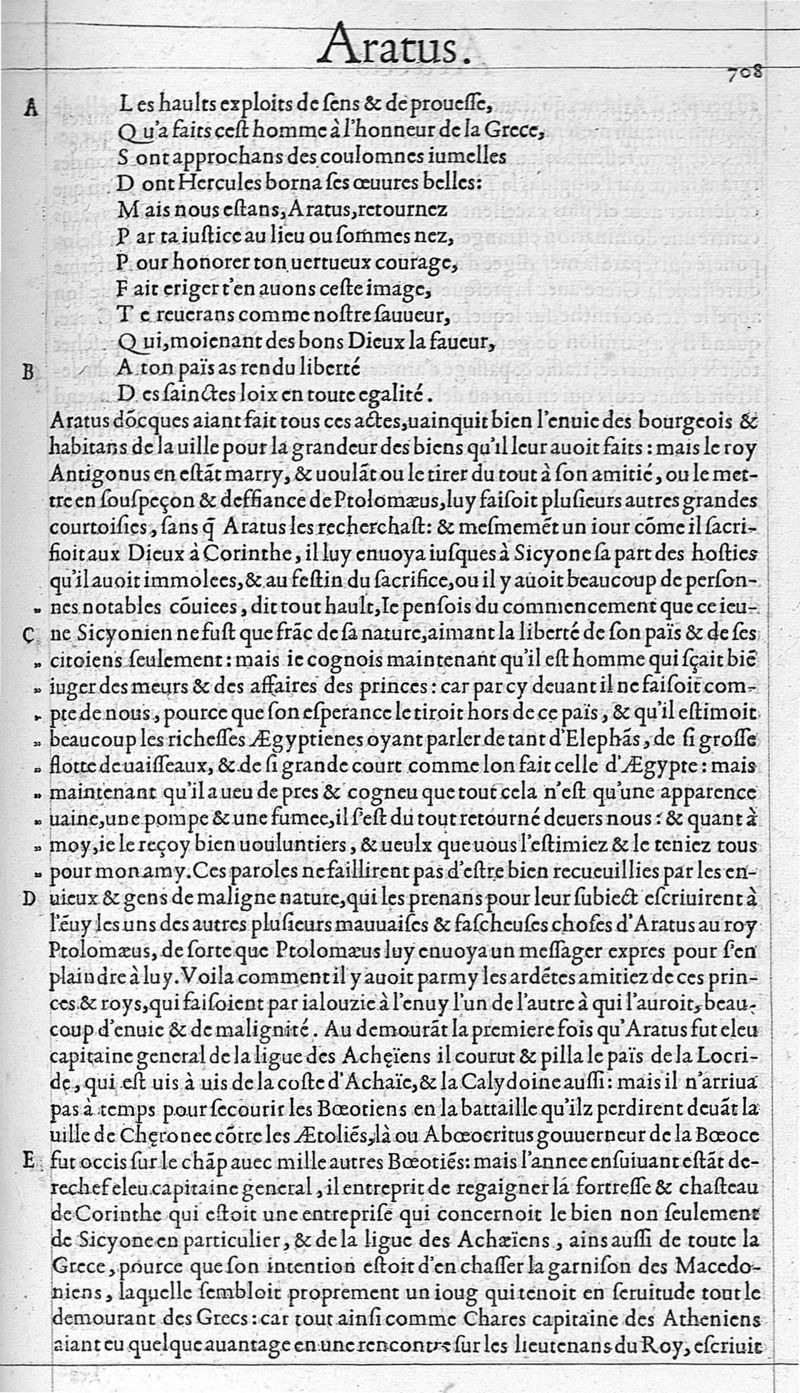 Aratus.
708
A Les haults exploits de ſens & de proueſſe,
Qu'a faits ceſt homme à l'honneur de la Grece,
Sont approchans des coulomnes iumelles
Dont Hercules borna ſes œuures belles:
Mais nous eſtans, Aratus, retournez
Par ta iuſtice au lieu ou ſommes nez,
Pour honorer ton uertueux courage,
Fait eriger t'en auons ceſte image,
Te reuerans comme noſtre ſauueur,
Qui, moienant des bons Dieux la faueur,
B A ton païs as rendu liberté
Des ſainctes loix en toute egalité.
Aratus dõcques aiant fait tous ces actes, uainquit bien l'enuie des bourgeois &
habitans de la uille pour la grandeur des biens qu'il leur auoit faits: mais le roy
Antigonus en eſtãt marry, & uoulãt ou le tirer du tout à ſon amitié, ou le met-
tre en ſouſpeçon & deffiance de Ptolomæus, luy faiſoit pluſieurs autres grandes
courtoiſies, ſans q̃ Aratus les recherchaſt: & meſmemẽt un iour cõme il ſacri-
fioit aux Dieux à Corinthe, il luy enuoya iuſques à Sicyone ſa part des hoſties
qu'il auoit immolees, & au feſtin du ſacrifice, ou il y auoit beaucoup de perſon-
„ nes notables cõuiees, dit tout hault, Ie penſois du commencement que ce ieu-
C ne Sicyonien ne fuſt que frãc de ſa nature, aimant la liberté de ſon païs & de ſes
„ citoiens ſeulement: mais ie cognois maintenant qu'il eſt homme qui ſçait biẽ
„ iuger des meurs & des affaires des princes: car par cy deuant il ne faiſoit com-
„ pte de nous, pource que ſon eſperance le tiroit hors de ce païs, & qu'il eſtimoit
„ beaucoup les richeſſes Ægyptienes oyant parler de tant d'Elephãs, de ſi groſſe
„ flotte de uaiſſeaux, & de ſi grande court comme lon fait celle d'Ægypte: mais
„ maintenant qu'il a ueu de pres & cogneu que tout cela n'eſt qu'une apparence
„ uaine, une pompe & une fumee, il s'eſt du tout retourné deuers nous: & quant à
„ moy, ie le reçoy bien uouluntiers, & ueulx que uous l'eſtimiez & le teniez tous
„ pour mon amy. Ces paroles ne faillirent pas d'eſtre bien recueuillies par les en-
D uieux & gens de maligne nature, qui les prenans pour leur ſubiect eſcriuirent à
l'ẽuy les uns des autres pluſieurs mauuaiſes & faſcheuſes choſes d'Aratus au roy
Ptolomæus, de ſorte que Ptolomæus luy enuoya un meſſager expres pour ſ'en
plaindre à luy. Voila comment il y auoit parmy les ardẽtes amitiez de ces prin-
ces & roys, qui faiſoient par ialouzie à l'enuy l'un de l'autre à qui l'auroit, beau-
coup d'enuie & de malignité. Au demourãt la premiere fois qu'Aratus fut eleu
capitaine general de la ligue des Achęïens il courut & pilla le païs de la Locri-
de, qui eſt uis à uis de la coſte d'Achaïe, & la Calydoine auſſi: mais il n'arriua
pas à temps pour ſecourir les Bœotiens en la battaille qu'ilz perdirent deuãt la
uille de Chęronee cõtre les Ætoliẽs, là ou Abœocritus gouuerneur de la Bœoce
E fut occis ſur le chãp auec mille autres Bœotiẽs: mais l'annee enſuiuant eſtãt de-
rechef eleu capitaine general, il entreprit de regaigner la fortreſſe & chaſteau
de Corinthe qui eſtoit une entrepriſe qui concernoit le bien non ſeulement
de Sicyone en particulier, & de la ligue des Achæïens, ains auſſi de toute la
Grece, pource que ſon intention eſtoit d'en chaſſer la garniſon des Macedo-
niens, laquelle ſembloit proprement un ioug qui tenoit en ſeruitude tout le
demourant des Grecs: car tout ainſi comme Chares capitaine des Atheniens
aiant eu quelque auantage en une rencontre ſur les lieutenans du Roy, eſcriuit